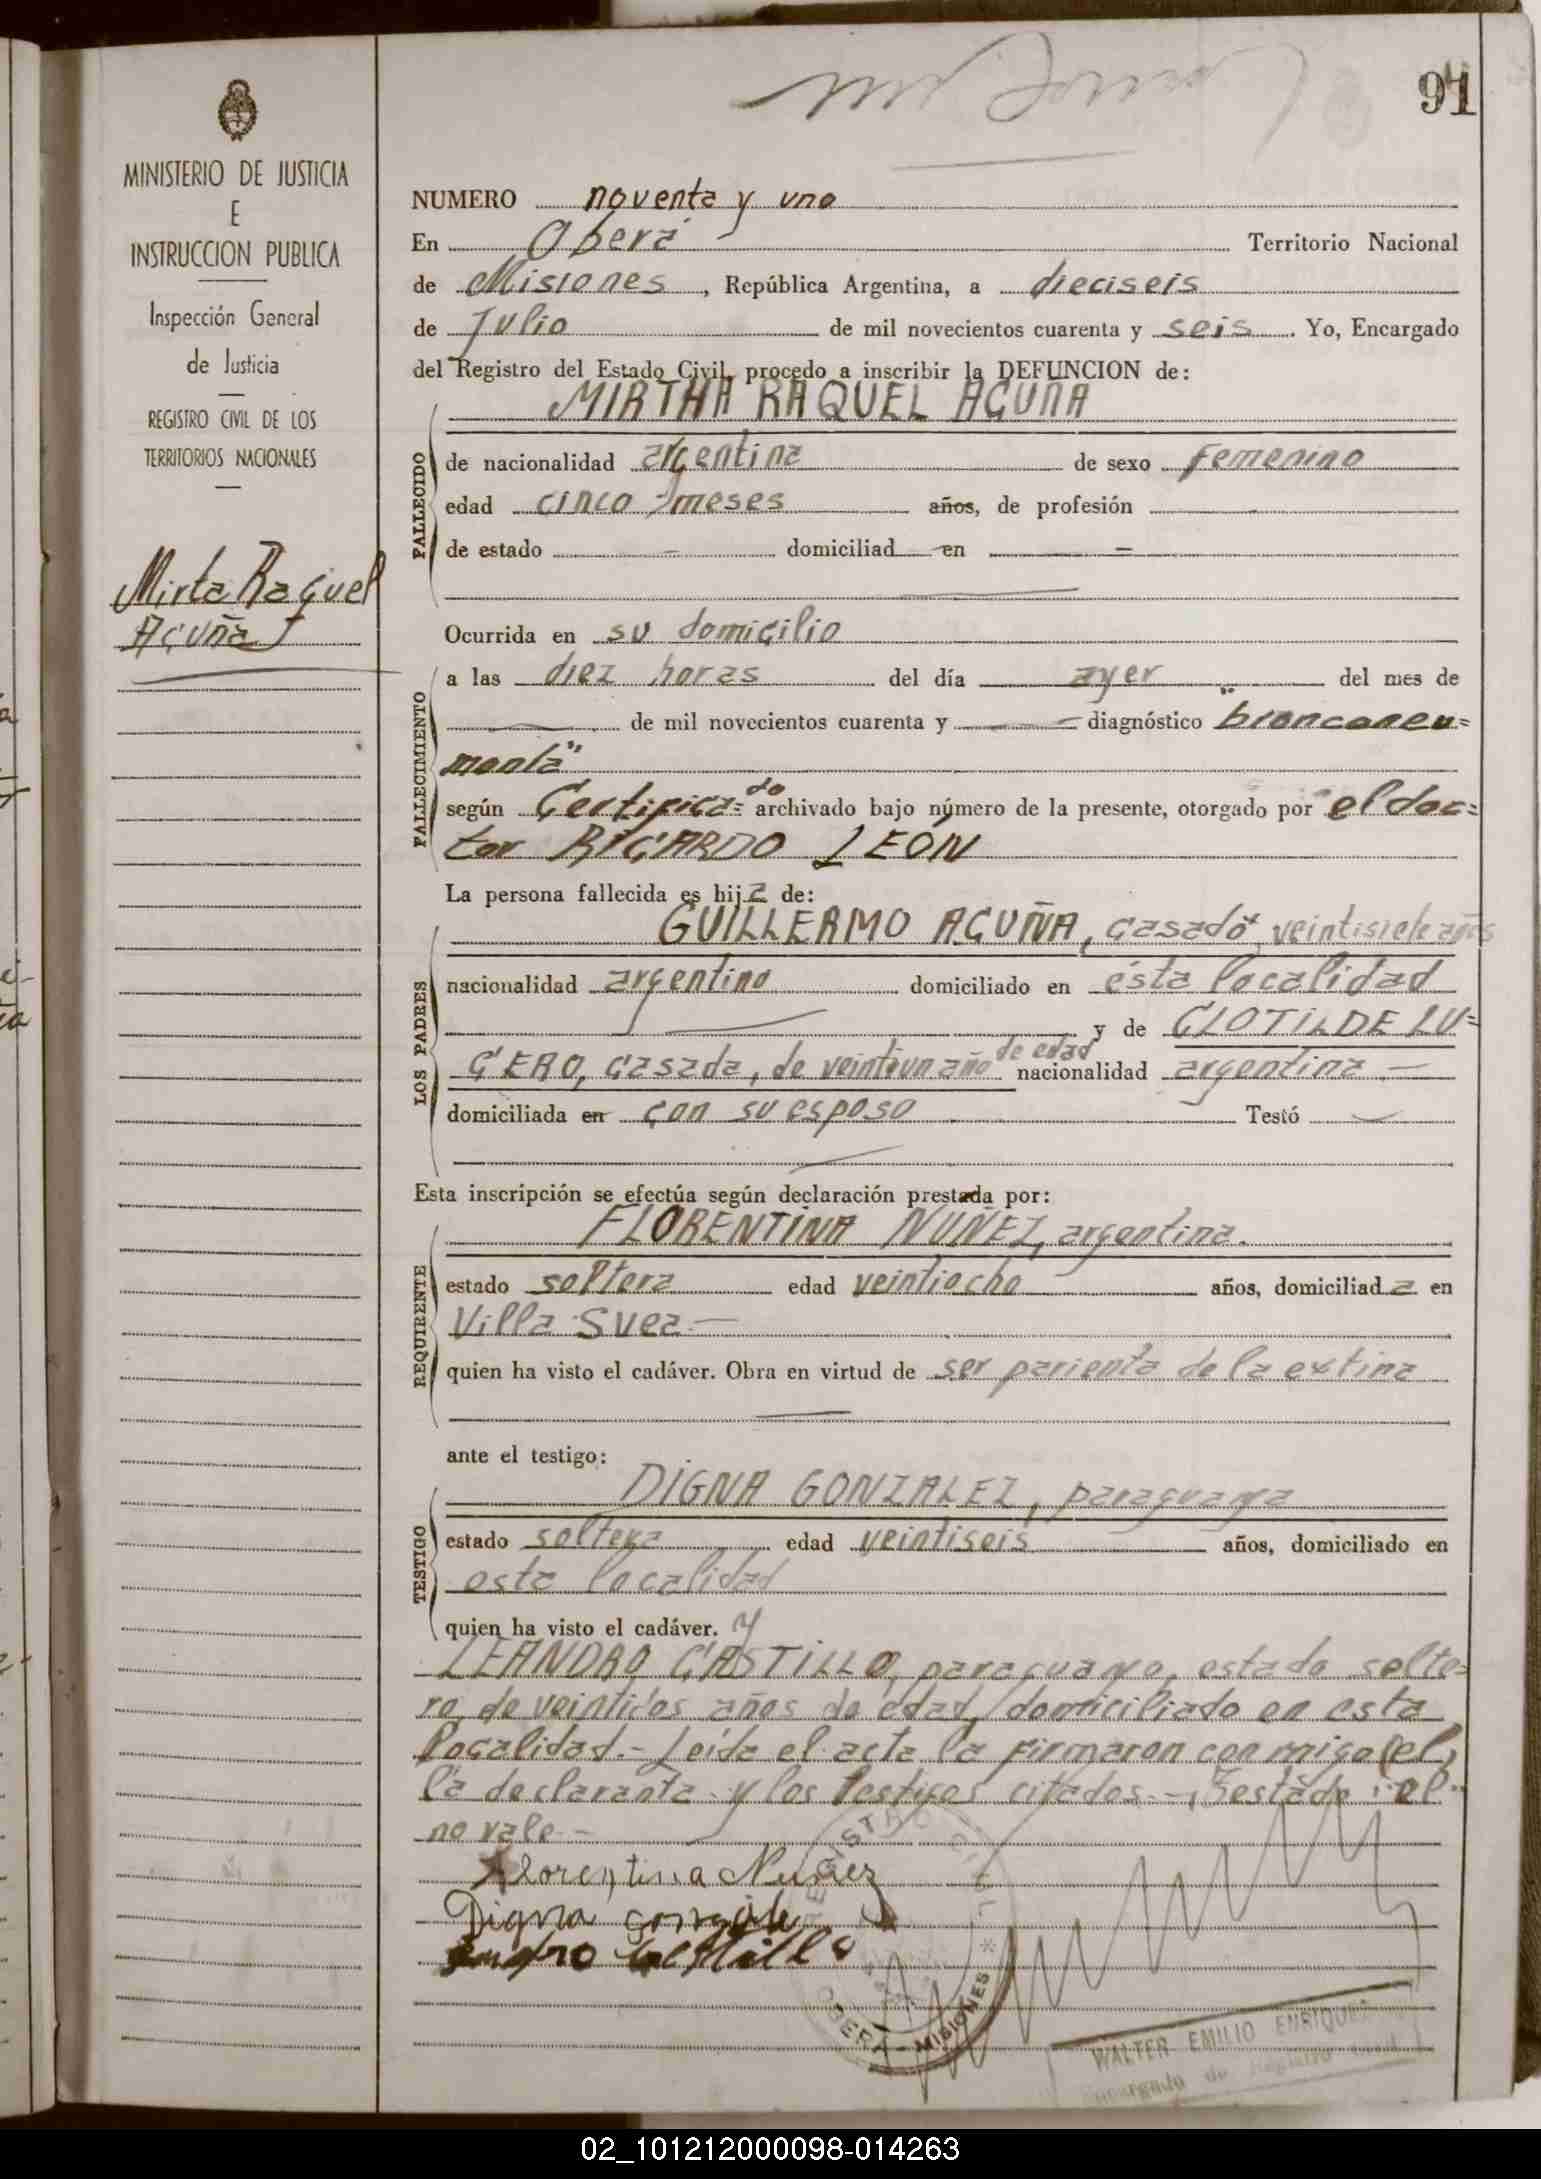 91
MINISTERIO DE JUSTICIA
E
INSTRUCCION PUBLICA
Inspección General
de Justicia
REGISTRO CIVIL DE LOS
TERRITORIOS NACIONALES
Mirta Raquel
Acuña
NUMERO noventa y uno
En Oberá Territorio Nacional
de Misiones, República Argentina, a dieciseis
de Julio de mil novecientos cuarenta y seis. Yo, Encargado
del Registro del Estado Civil, procedo a inscribir la DEFUNCION de:
MIRTHA RAQUEL ACUÑA
FALLECIDO
de nacionalidad argentina de sexo femenino
edad cinco meses años, de profesión
de estado - domiciliad en -
Ocurrida en su domicilio
FALLECIMIENTO
a las diez horas del día ayer del mes de
de mil novecientos cuarenta y diagnóstico "bronconeu=
monía"
según Certifica=do archivado bajo número de la presente, otorgado por el doc=
tor RICARDO LEÓN
La persona fallecida es hija de:
LOS PADRES
GUILLERMO ACUÑA, casado, veintisiete años
nacionalidad argentino domiciliado en ésta localidad
y de CLOTILDE LU=
CERO, casada, de veintiun año de edad nacionalidad argentina -
domiciliada en con su esposo Testó
Esta inscripción se efectúa según declaración prestada por:
REQUIRENTE
FLORENTINA NUÑEZ, argentina.
estado soltera edad veintiocho años, domiciliada en
Villa Svea -
quien ha visto el cadáver. Obra en virtud de ser parienta de la extina
ante el testigo:
TESTIGO
DIGNA GONZALEZ, paraguaya
estado soltera edad veintiseis años, domiciliado en
esta localidad
quien ha visto el cadáver. y
LEANDRO CASTILLO, paraguayo, estado solte=
ro, de veintidos años de edad, domiciliado en esta
localidad.- Leída el acta la firmaron conmigo (el)
la declaranta y los testigos citados.-, Testado: el..
no vale -
Florentina Nuñez
Digna
Castillo
REGISTRO CIVIL * OBERA - MISIONES
WALTER EMILIO ENRIQUEZ
Encargado de Registro Civil
02_101212000098-014263